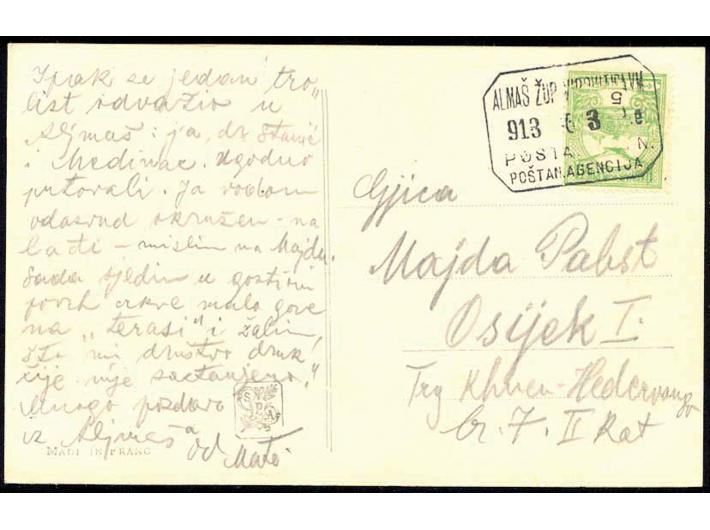 Ipak se jedan "tro
list odvažio u
Aljmaš: ja, dr Stanić
i Medinac. Ugodno
putovali. Ja vodom
odasvud okružen - na
lađi - mislim na Majdu.
Sada sjedim u gostioni
povrh crkve malo gore
na "terasi" i žalim,
što mi društvo druk
čije nije sastavljeno."
Mnogo pozdrava
iz Aljmaša
od Mate
MADE IN FRANC
SPA
ALMAŠ ŽUP
913 3
POŠTA N.
POŠTAN.AGENCIJA
5
Gjica
Majda Pabst
Osijek I.
Trg Khuen-Hedervarya
br. 7. II Kat